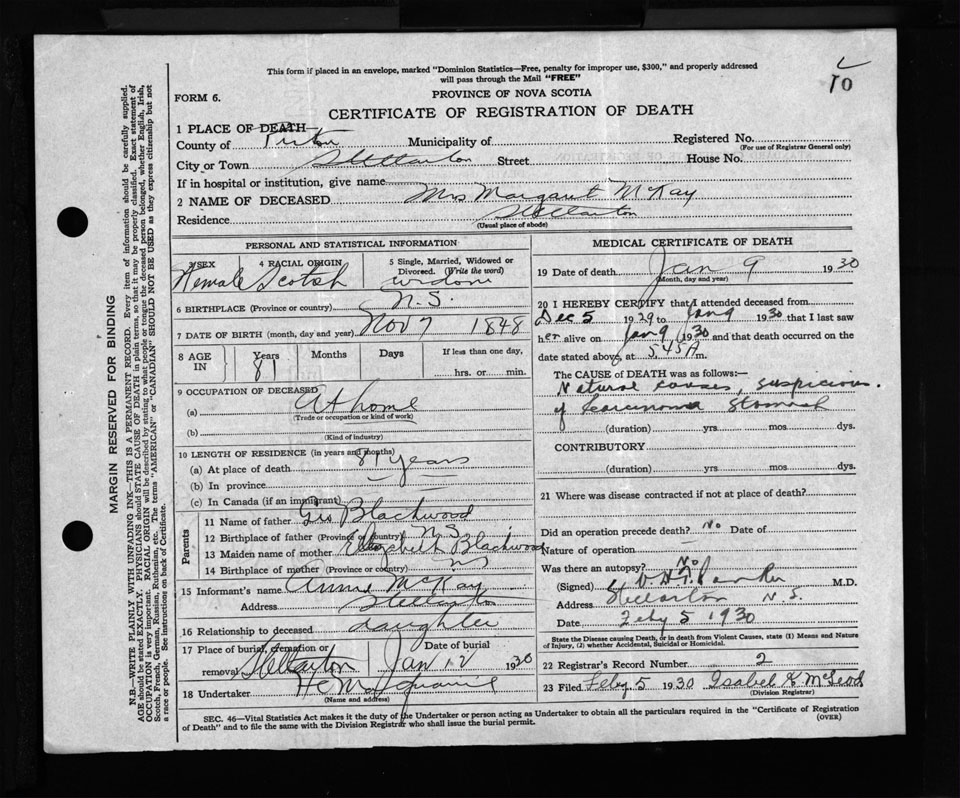 10
This form if placed in an envelope, marked "Dominion Statistics—Free, penalty for improper use, $300," and properly addressed
will pass through the Mail "FREE"
PROVINCE OF NOVA SCOTIA
FORM 6.
CERTIFICATE OF REGISTRATION OF DEATH
1 PLACE OF DEATH
County of Pictou Municipality of Registered No.
(For use of Registrar General only)
City or Town Stellarton Street House No.
If in hospital or institution, give name
2 NAME OF DECEASED Mrs Margaret McKay
Residence Stellarton
(Usual place of abode)
PERSONAL AND STATISTICAL INFORMATION
3 SEX 4 RACIAL ORIGIN 5 Single, Married, Widowed or
Divorced. (Write the word)
Female Scotch widow
6 BIRTHPLACE (Province or country) N.S.
7 DATE OF BIRTH (month, day and year) Nov 7 1848
8 AGE IN Years Months Days If less than one day,
81 hrs. or min.
9 OCCUPATION OF DECEASED
(a) At home
(Trade or occupation or kind of work)
(b)
(Kind of industry)
10 LENGTH OF RESIDENCE (in years and months)
(a) At place of death 81 years
(b) In province
(c) In Canada (if an immigrant)
Parents
11 Name of father Geo Blackwood
12 Birthplace of father (Province or country) N S
13 Maiden name of mother Elizabeth Blackwood
14 Birthplace of mother (Province or country) N S
15 Informant's name Annie McKay
Address Stellarton
16 Relationship to deceased daughter
17 Place of burial, cremation or Date of burial
removal Stellarton Jan 12 1930
18 Undertaker
(Name and address)
MEDICAL CERTIFICATE OF DEATH
19 Date of death Jan 9 1930
(Month, day and year)
20 I HEREBY CERTIFY that I attended deceased from
Dec 5 1929 to Jan 9 1930 that I last saw
her alive on Jan 9 1930 and that death occurred on the
date stated above, at 5.45 A m.
The CAUSE of DEATH was as follows:—
Natural causes, suspicious
of Carcinoma Stomach
(duration) yrs mos dys.
CONTRIBUTORY
(duration) yrs mos dys.
21 Where was disease contracted if not at place of death?
Did an operation precede death? No Date of
Nature of operation
Was there an autopsy? No
(Signed) Parker M.D.
Address Stellarton N.S.
Date Feby 5 1930
State the Disease causing Death, or in death from Violent Causes, state (1) Means and Nature
of Injury, (2) whether Accidental, Suicidal or Homicidal.
22 Registrar's Record Number 2
23 Filed Feby 5 1930 Isabel K. McLeod
(Division Registrar)
SEC. 46—Vital Statistics Act makes it the duty of the Undertaker or person acting as Undertaker to obtain all the particulars required in the "Certificate of Registration
of Death" and to file the same with the Division Registrar who shall issue the burial permit.
(OVER)
MARGIN RESERVED FOR BINDING
N.B.—WRITE PLAINLY WITH UNFADING INK—THIS IS A PERMANENT RECORD. Every item of information should be carefully supplied.
AGE should be stated EXACTLY. PHYSICIANS should STATE CAUSE OF DEATH in plain terms, so that it may be properly classified. Exact statement of
OCCUPATION is very important. RACIAL ORIGIN will be described by stating to what people or tongue the deceased person belonged, whether English, Irish,
Scotch, French, German, Russian, Ruthenian, etc. The terms "AMERICAN" or "CANADIAN" SHOULD NOT BE USED as they express citizenship but not
a race or people. See instructions on back of Certificate.